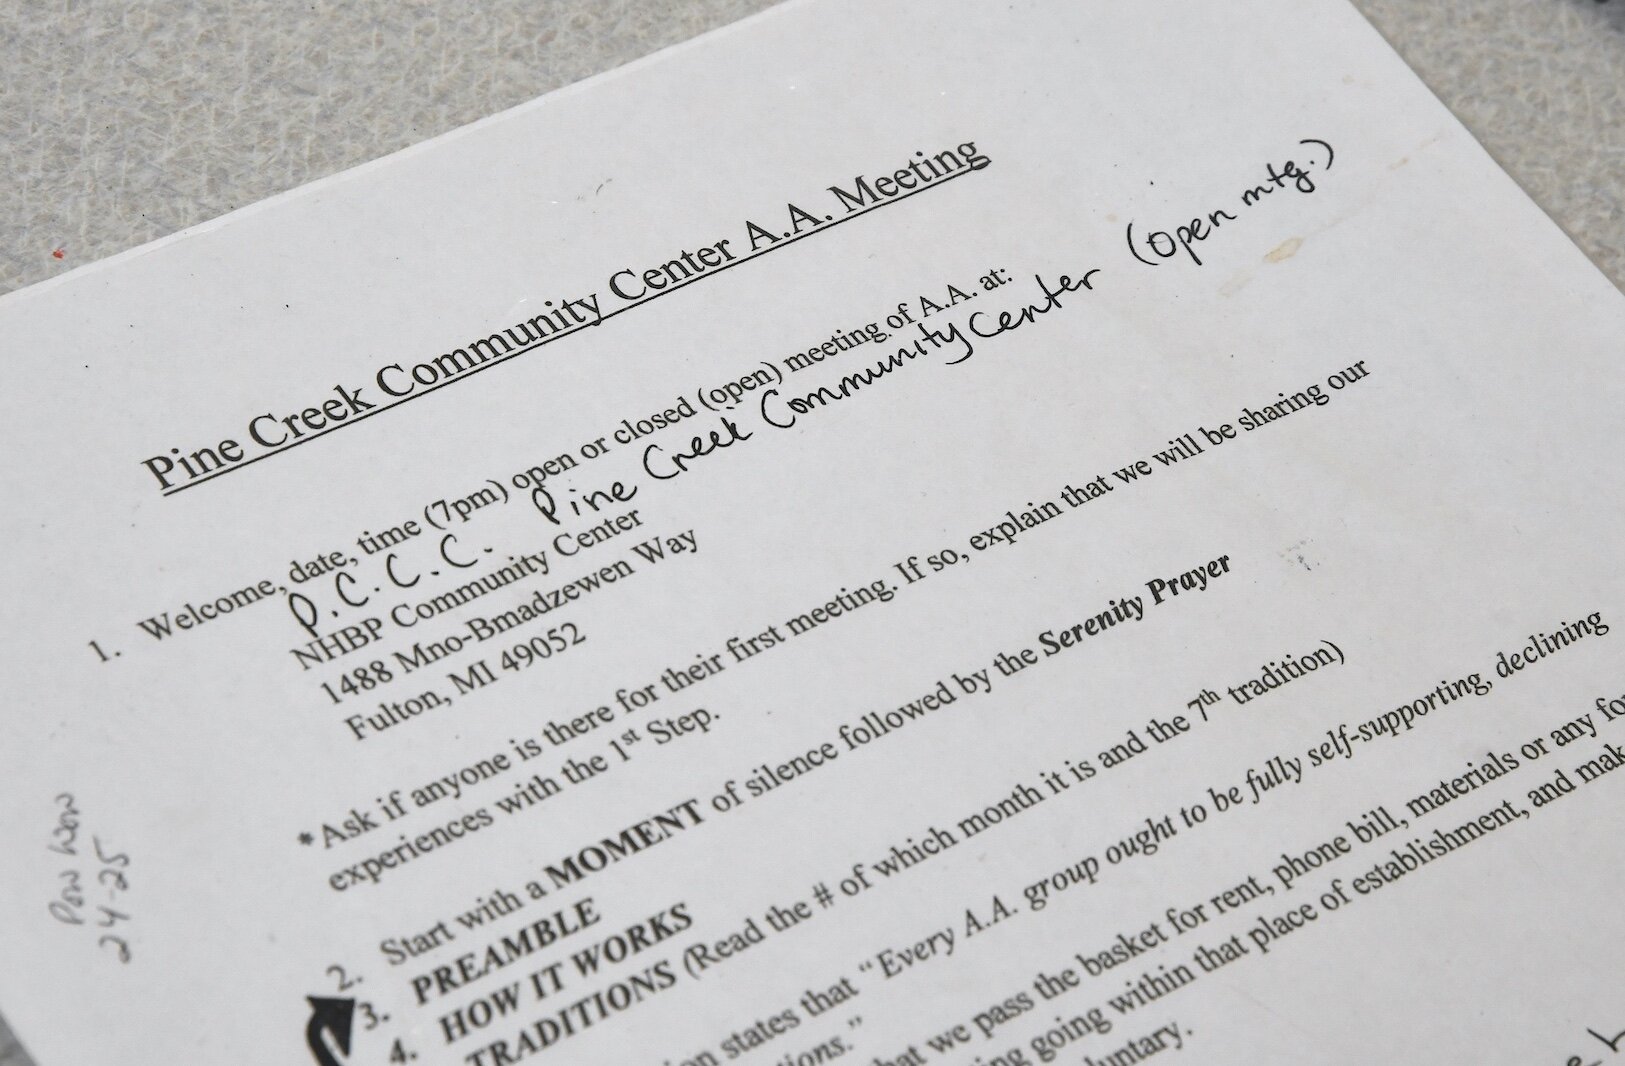 Pine Creek Community Center A.A. Meeting
1. Welcome, date, time (7pm) open or closed (open) meeting of A.A. at:
P.C.C.C. Pine Creek Community Center (open mtg.)
NHBP Community Center
1488 Mno-Bmadzewen Way
Fulton, MI 49052
*Ask if anyone is there for their first meeting. If so, explain that we will be sharing our
experiences with the 1st Step.
2. Start with a MOMENT of silence followed by the Serenity Prayer
3. PREAMBLE
4. HOW IT WORKS
TRADITIONS (Read the # of which month it is and the 7th tradition)
states that "Every A.A. group ought to be fully self-supporting, declining
we pass the basket for rent, phone bill, materials or any
going within that place of establishment, and
Pow Wow
24-25